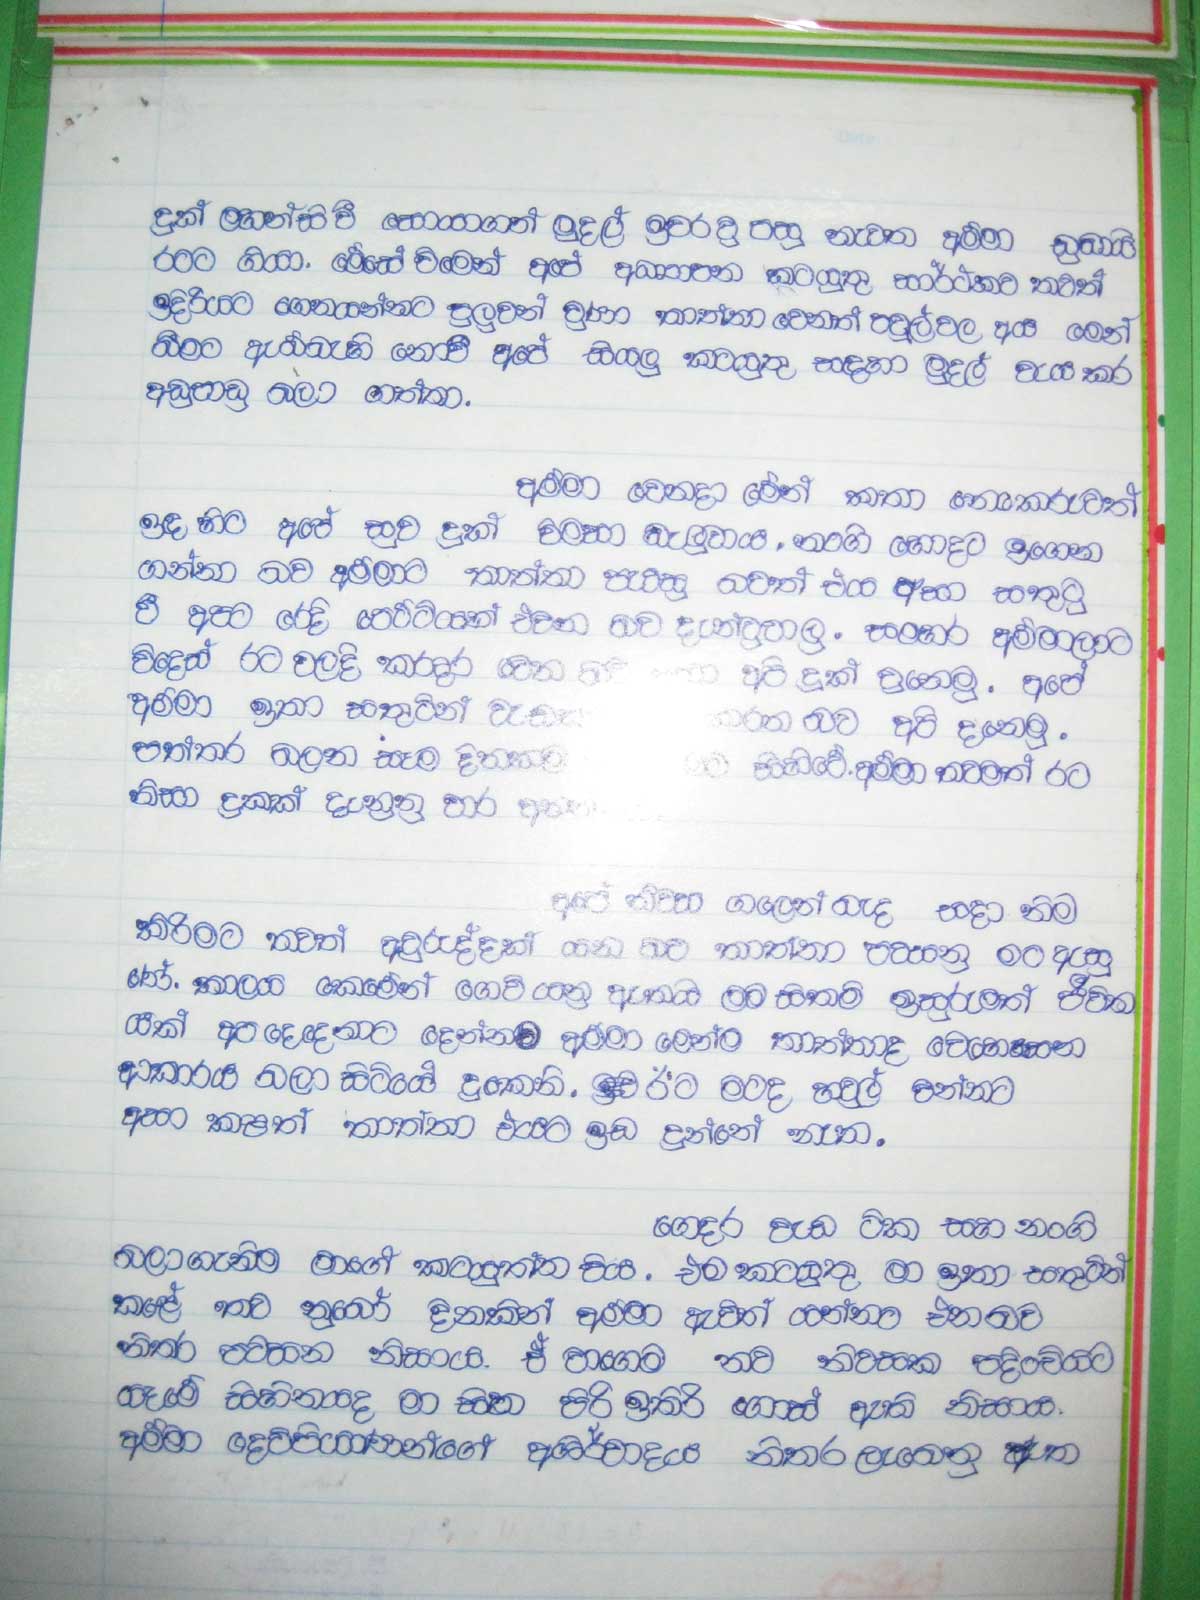 දුක් මහන්සි වී සොයාගත් මුදල් ඉවර වූ පසු නැවත අම්මා කුවායි
රටට ගියා. මෙසේ වීමෙන් අපේ අධ්‍යාපන කටයුතු සාර්ථකව තවත්
ඉදිරියට ගෙනයන්නට පුලුවන් වුණා තාත්තා වෙනත් පවුල්වල අය මෙන්
බීමට ඇබ්බැහි නොවී අපේ සියලු කටයුතු සඳහා මුදල් වැය කර
අඩුපාඩු බලා ගත්තා.
අම්මා වෙනදා මෙන් කතා නොකරුවත්
ඉඳ හිට අපේ සුව දුක් විමසා බැලුවාය. නංගි හොදට ඉගෙන
ගන්නා බව අම්මාට තාත්තා පැවසු බවත් එය අසා සතුටු
වී අපට රෙදි පෙට්ටියක් එවන බව දැන්වූවාලු. සමහර අම්මාලාට
විදෙස් රට වලදි කරදර වෙන අපි දුක් වුනෙමු. අපේ
අම්මා ඉතා සතුටින් කරන බව අපි දනෙමු.
පත්තර බලන සෑම දිනකම සිහිවේ. අම්මා තවමත් රට
නිසා දුකක් දැනුනු වාර
අපේ නිවස ගලෙන් බැද සාදා නිම
කිරිමට තවත් අවුරුද්දක් යන බව තාත්තා පවසනු මට ඇසු
ණේ. කාලය කෙමෙන් ගෙවී යනු ඇතැයි මට සිතම් ඉසුරුමත් ජීවිත
යක් අප දෙදෙනාට දෙන්නට අම්මා මෙන්ම තාත්තාද වෙහෙසෙන
ආකාරය බලා සිටියේ දුකෙනි. ඊට මටද හවුල් වන්නට
අසා කළත් තාත්තා එයට ඉඩ දුන්නේ නැත.
ගෙදර වැඩ ටික සහ නංගි
බලාගැනිම මාගේ කටයුත්ත විය. එම කටයුතු මා ඉතා සතුටින්
කළේ තව නුබෝ දිනකින් අම්මා ඇවිත් යන්නට එන බව
නිතර පවසන නිසාය. ඒ වාගෙම නව නිවසක පදිංචියට
යෑමේ සිහිනයද මා සිත පිරි ඉතිරි ගොස් ඇති නිසාය.
අම්මා දෙවිපියාණන්ගේ අශිර්වාදය නිතර ලැබෙනු ඇත